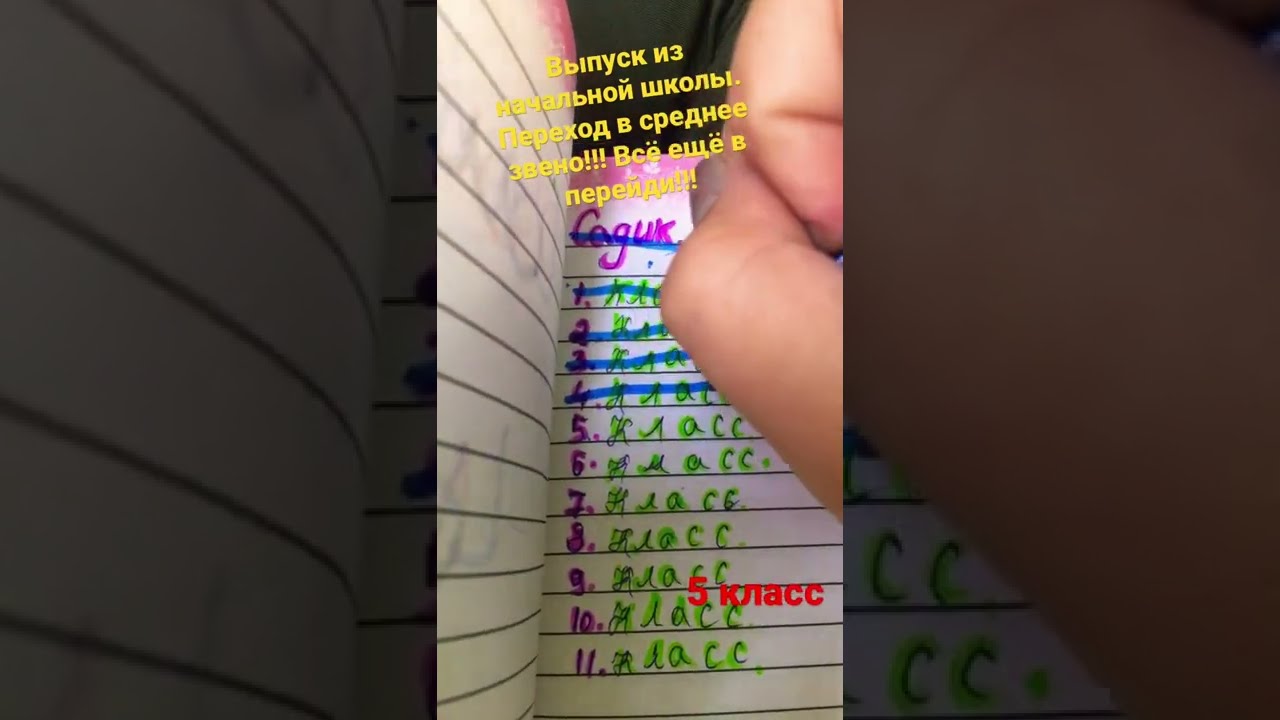 Выпуск из
начальной школы.
Переход в среднее
звено!!! Всё ещё в
перейди!!!
Садик
1. Клас
2 Кла
3. Кла
4. Класс
5. Класс.
6. Класс.
7. Класс.
8. Класс.
9. Класс
5 класс
10. Класс.
11. Класс.